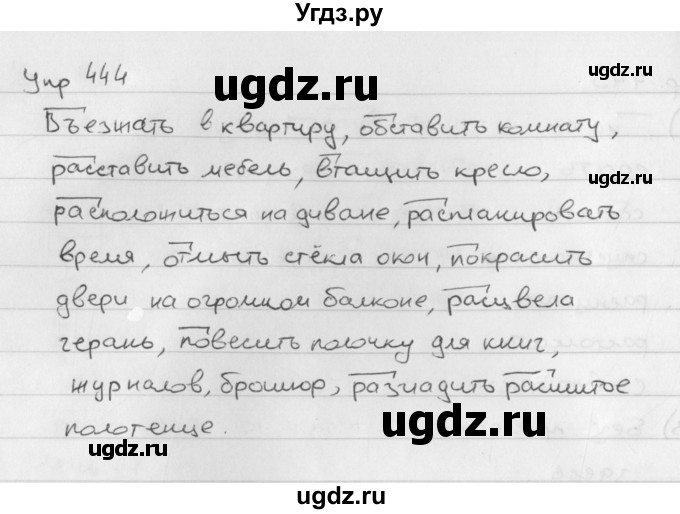 Угдз.ру
Упр 444
ugdz.ru
ugdz.ru
Въезжать в квартиру, обставить комнату,
расставить мебель, втащить кресло,
ugdz.ru
расположиться на диване, распланировать
время, отмыть стёкла окон, покрасить
двери на огромном балконе, расцвела
герань, повесить полочку для книг,
журналов, брошюр, разгладить расшитое
полотенце.
ugdz.ru
ugdz.ru
ugdz.ru